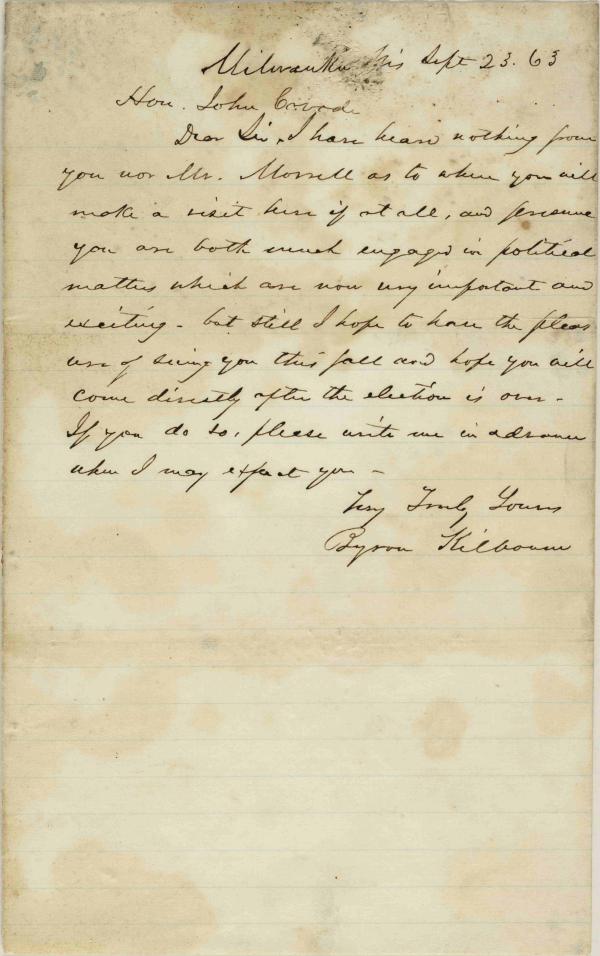 Milwaukee Wis Sept 23. 63
Hon. John Covode
Dear Sir, I have heard nothing from
you nor Mr. Morrell as to when you will
make a visit here if at all, and presume
you are both much engaged in political
matters which are now very important and
exciting - but still I hope to have the pleas
ure of seeing you this fall and hope you will
come directly after the election is over -
If you do so, please write me in advance
when I may expect you -
Very Truly Yours
Byron Kilbourn